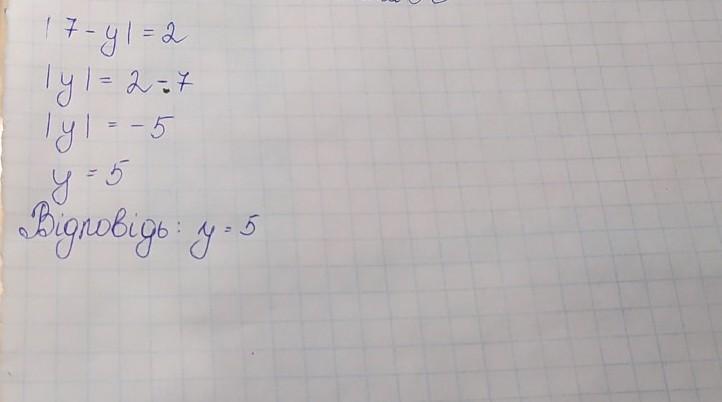 |7-y|=2
|y|= 2-7
|y| = -5
y = 5
Відповідь: y = 5